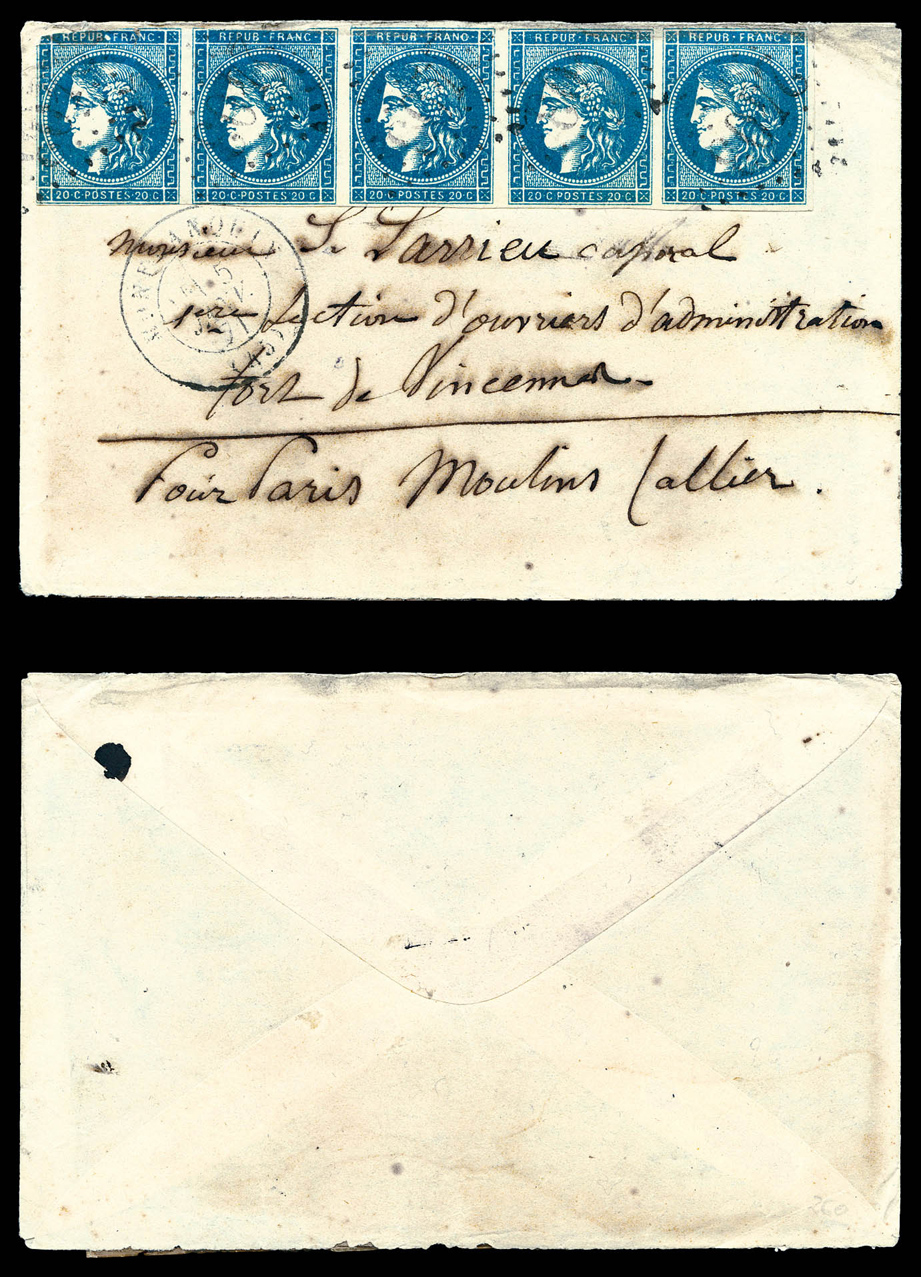 REPUB·FRANC REPUB·FRANC REPUB·FRANC REPUB·FRANC REPUB·FRANC
20·C·POSTES·20·C 20·C·POSTES·20·C 20·C·POSTES·20·C 20·C·POSTES·20·C 20·C·POSTES·20·C
monsieur S. Sarrieu caporal
1ere Section d'ouvriers d'administration
fort de Vincennes
Pour Paris Moulins Lallier.